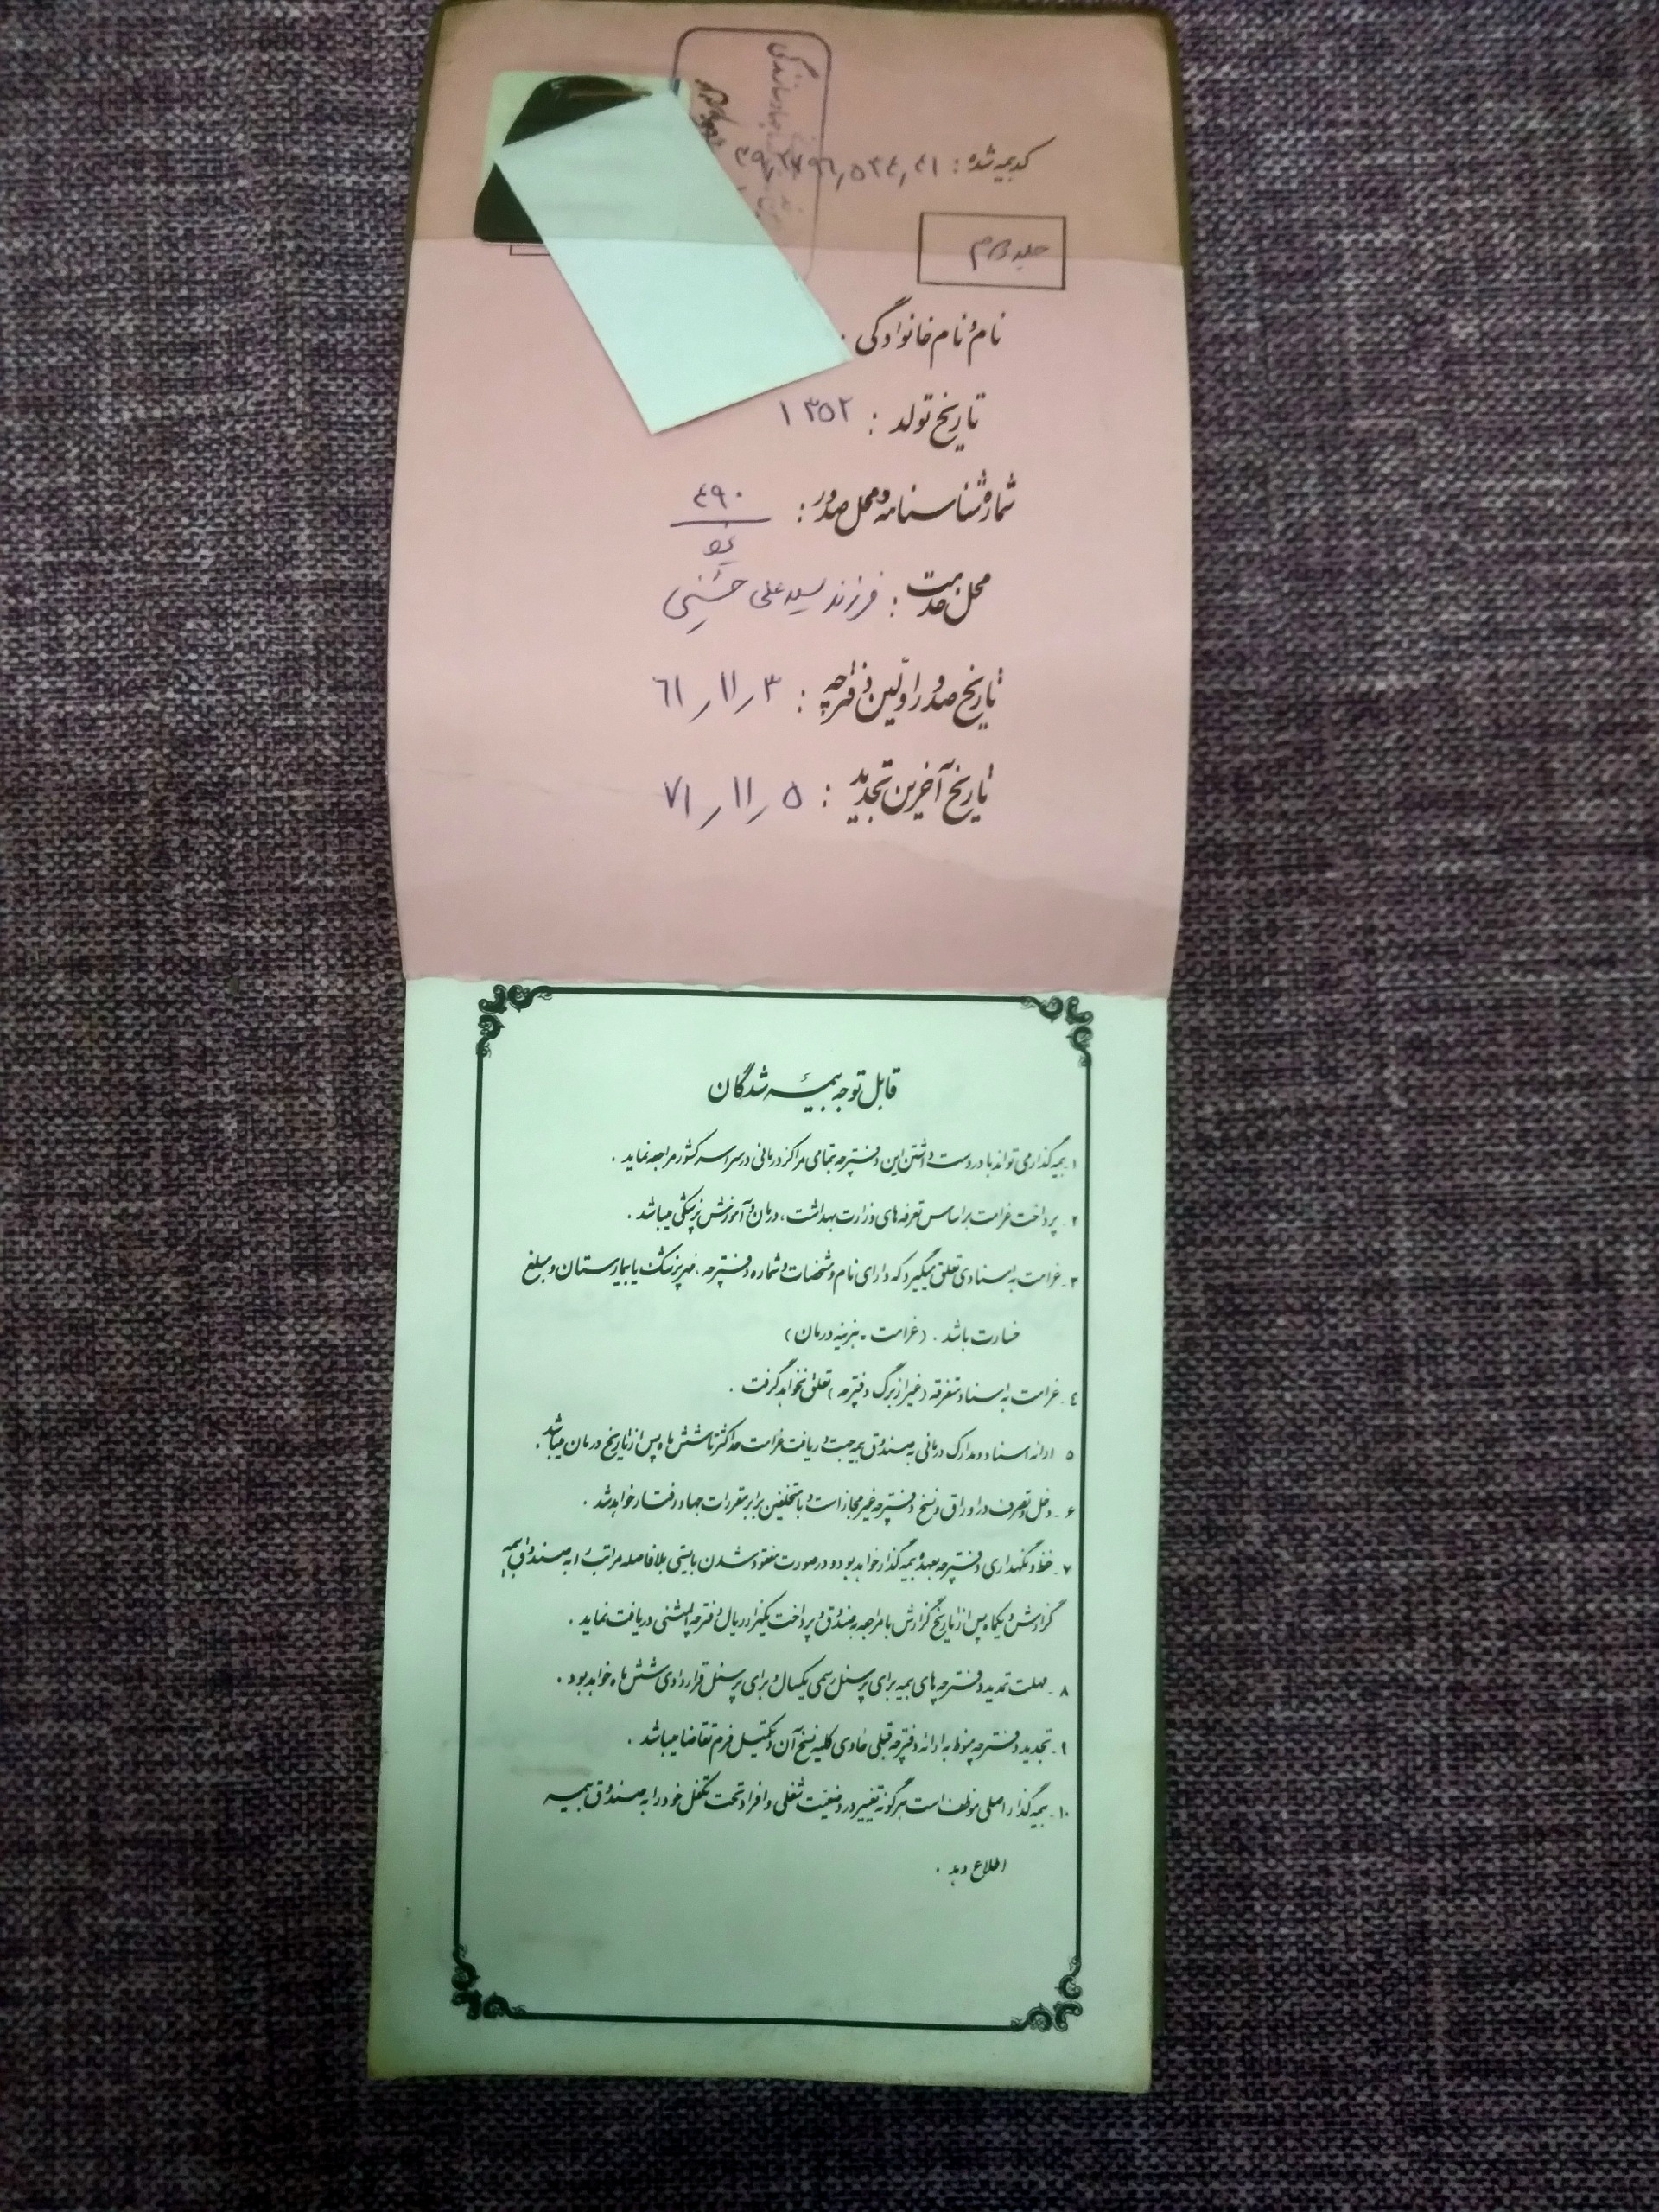 کد بیمه شده : ۳۹,۲۷۹۶,۵۳۴,۴۱
جلد دوم
نام و نام خانوادگی
تاریخ تولد : ۱۳۵۲
شماره شناسنامه و محل صدور : ۴۹۰
محل خدمت : فرزند سید علی حسنی
تاریخ صدور اولین دفترچه : ۶۱/۱۱/۳
تاریخ آخرین تجدید : ۷۱/۱۱/۵
قابل توجه بیمه شدگان
۱. بیمه گذار می تواند با در دست داشتن این دفترچه بتمامی مراکز درمانی در سراسر کشور مراجعه نماید .
۲. پرداخت غرامت بر اساس تعرفه های وزارت بهداشت ، درمان و آموزش پزشکی میباشد .
۳. غرامت به اسنادی تعلق میگیرد که دارای نام و مشخصات و شماره دفترچه ، مهر پزشک یا بیمارستان و مبلغ
خسارت باشد . (غرامت = هزینه درمان)
۴. غرامت به اسناد متفرقه (غیر از برگ دفترچه) تعلق نخواهد گرفت .
۵ ارائه اسناد و مدارک درمانی به صندوق بیمه جهت دریافت غرامت حداکثر تا شش ماه پس از تاریخ درمان میباشد .
۶. دخل و تصرف در اوراق و نسخ دفترچه غیر مجاز است و با متخلفین برابر مقررات جهاد رفتار خواهد شد .
۷. حفظ و نگهداری دفترچه بعهده بیمه گذار خواهد بود و در صورت مفقود شدن بایستی بلافاصله مراتب را به صندوق بیمه
گزارش و یکماه پس از تاریخ گزارش با مراجعه به صندوق و پرداخت یکهزار ریال دفترچه المثنی دریافت نماید .
۸. مهلت تمدید دفترچه های بیمه برای پرسنل رسمی یکسال و برای پرسنل قراردادی شش ماه خواهد بود .
۹. تجدید دفترچه منوط به ارائه دفترچه قبلی حاوی کلیه نسخ آن و تکمیل فرم تقاضا میباشد .
۱۰. بیمه گذار اصلی موظف است هرگونه تغییر در وضعیت شغلی و افراد تحت تکفل خود را به صندوق بیمه
اطلاع دهد .